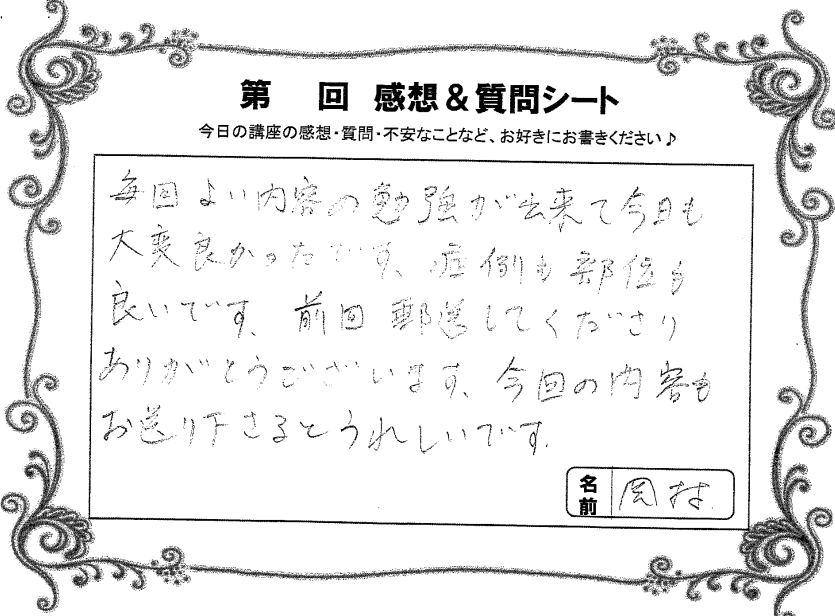 第　回 感想＆質問シート
今日の講座の感想・質問・不安なことなど、お好きにお書きください♪
毎回よい内容の勉強が出来て今日も
大変良かったです、症例も部位も
良いです、前回郵送してくださり
ありがとうございます、今回の内容も
お送り下さるとうれしいです.
名前 岡村